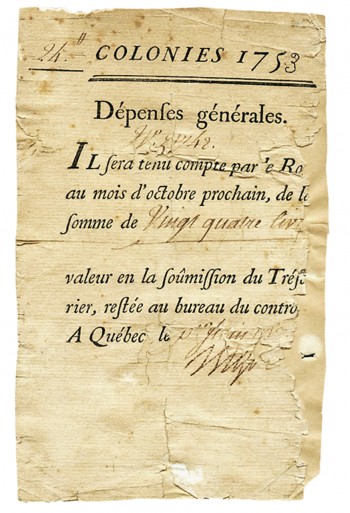 24.# COLONIES 1753
Dépenſes générales.
IL ſera tenu compte par le Ro
au mois d'octobre prochain, de la
ſomme de Vingt quatre livr
valeur en la ſoûmiſſion du Tréſo
rier, reſtée au bureau du contro
A Québec le